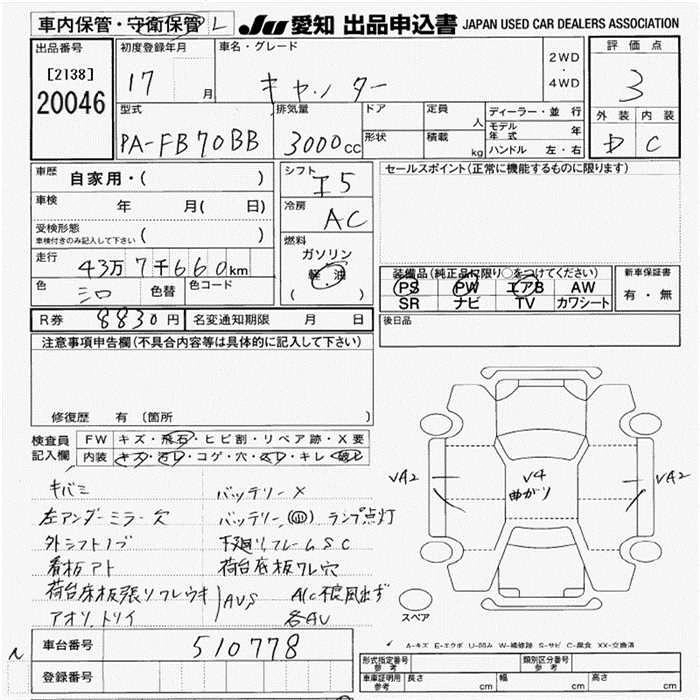 車内保管・守衛保管 L
JU 愛知 出品申込書 JAPAN USED CAR DEALERS ASSOCIATION
出品番号
[2138]
20046
初度登録年月
17 月
車名・グレード
キャンター
2WD
・
4WD
評価点
3
外装 内装
D C
型式
PA-FB70BB
排気量
3000cc
ドア
形状
定員
人
積載
kg
ディーラー・並行
モデル年式 年
ハンドル 左・右
車歴
自家用・( )
車検
年 月( 日)
受検形態
車検付きのみ記入して下さい ( )
走行
43万7千660km
色
シロ
色替
色コード
シフト
I5
冷房
AC
燃料
ガソリン
軽油
( )
セールスポイント(正常に機能するものに限ります)
装備品(純正品に限り○をつけてください)
PS PW エアB AW
SR ナビ TV カワシート
新車保証書
有・無
R券 8830円
名変通知期限 月 日
後日品
注意事項申告欄(不具合内容等は具体的に記入して下さい)
修復歴 有 〔箇所
検査員
記入欄
FW キズ・飛石・ヒビ割・リペア跡・X要
内装 キズ・汚レ・コゲ・穴・スレ・キレ・破レ
キバミ
左アンダーミラー欠
外シフトノブ
看板アト
荷台床板張リフレウキ
アオリ、トリイ
AVS
バッテリーX
バッテリー ランプ点灯
下廻リフレームSC
荷台底板フレ穴
A/C 不良風出ず
各AV
VA2
V4
曲がり
VA2
スペア
A-キズ E-エクボ U-凹み W-補修跡 S-サビ C-腐食 XX-交換済
車台番号
510778
登録番号
形式指定番号
参考
類別区分番号
参考
車庫証明用
参考
長さ cm
幅 cm
高さ cm